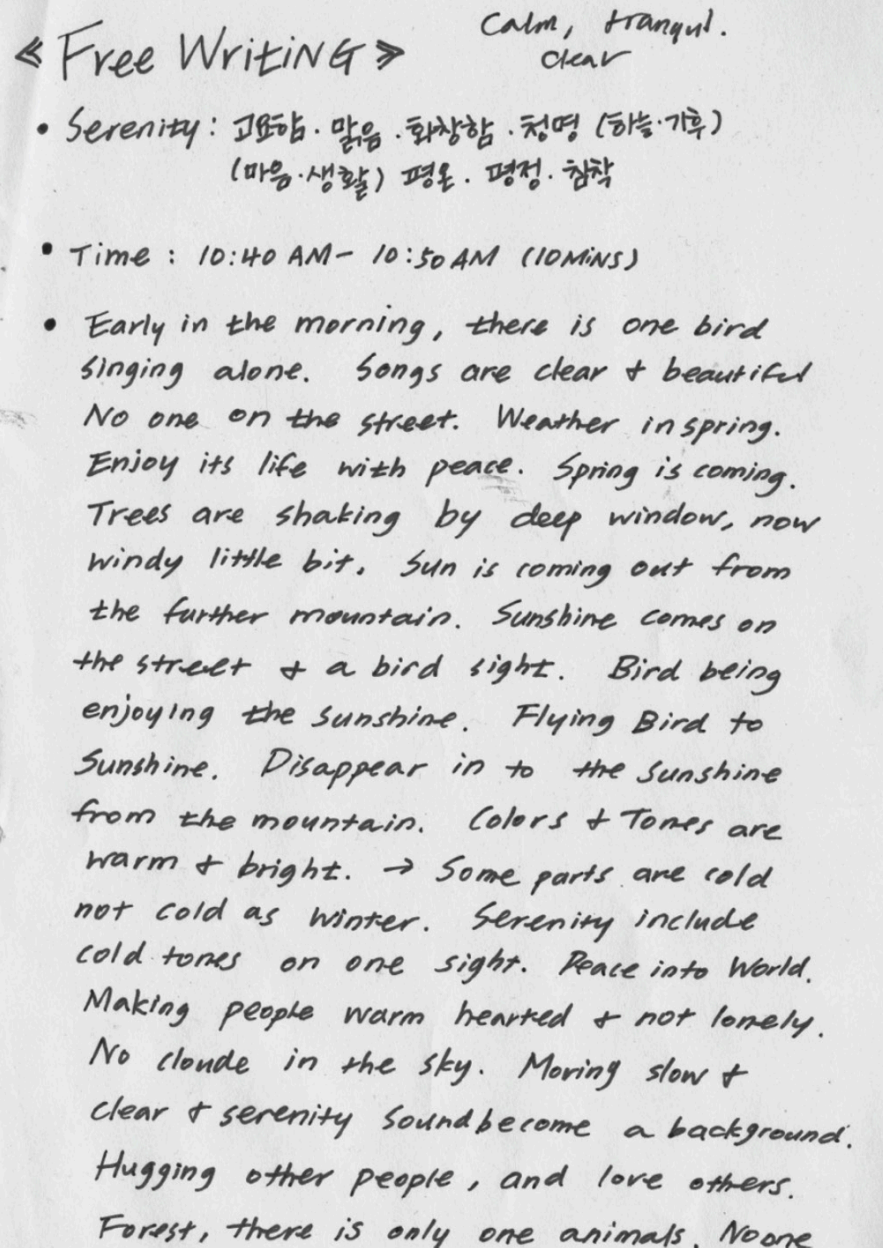 Calm, tranqul.
≪ Free WritiNG ≫
clear
• Serenity : 고요함 · 맑음 · 화창함 · 청명 (하늘·기후)
(마음·생활) 평온 · 평정 · 침착
• Time : 10:40 AM - 10:50 AM (10MiNS)
• Early in the morning, there is one bird
singing alone. Songs are clear & beautiful
No one on the street. Weather in spring.
Enjoy its life with peace. Spring is coming.
Trees are shaking by deep window, now
windy little bit. Sun is coming out from
the further mountain. Sunshine comes on
the street & a bird sight. Bird being
enjoying the sunshine. Flying Bird to
Sunshine. Disappear in to the sunshine
from the mountain. Colors & Tones are
warm & bright. → Some parts are cold
not cold as winter. Serenity include
cold tones on one sight. Peace into World.
Making people warm hearted & not lonely.
No cloude in the sky. Moring slow &
clear & serenity sound become a background.
Hugging other people, and love others.
Forest, there is only one animals. No one